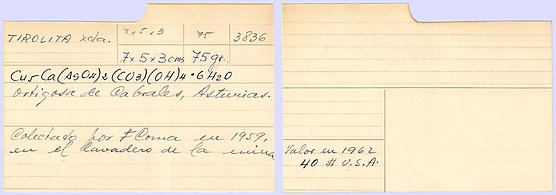 TIROLITA xda. 7x5x3 75 3836
7x5x3 cms 75 gr.
Cu5Ca(AsOH)2(CO3)(OH)4·6H2O
Ortigosa de Cabrales, Asturias.
Colectado por F Coma en 1959,
en el lavadero de la mina
Valor en 1962
40 $ U.S.A.